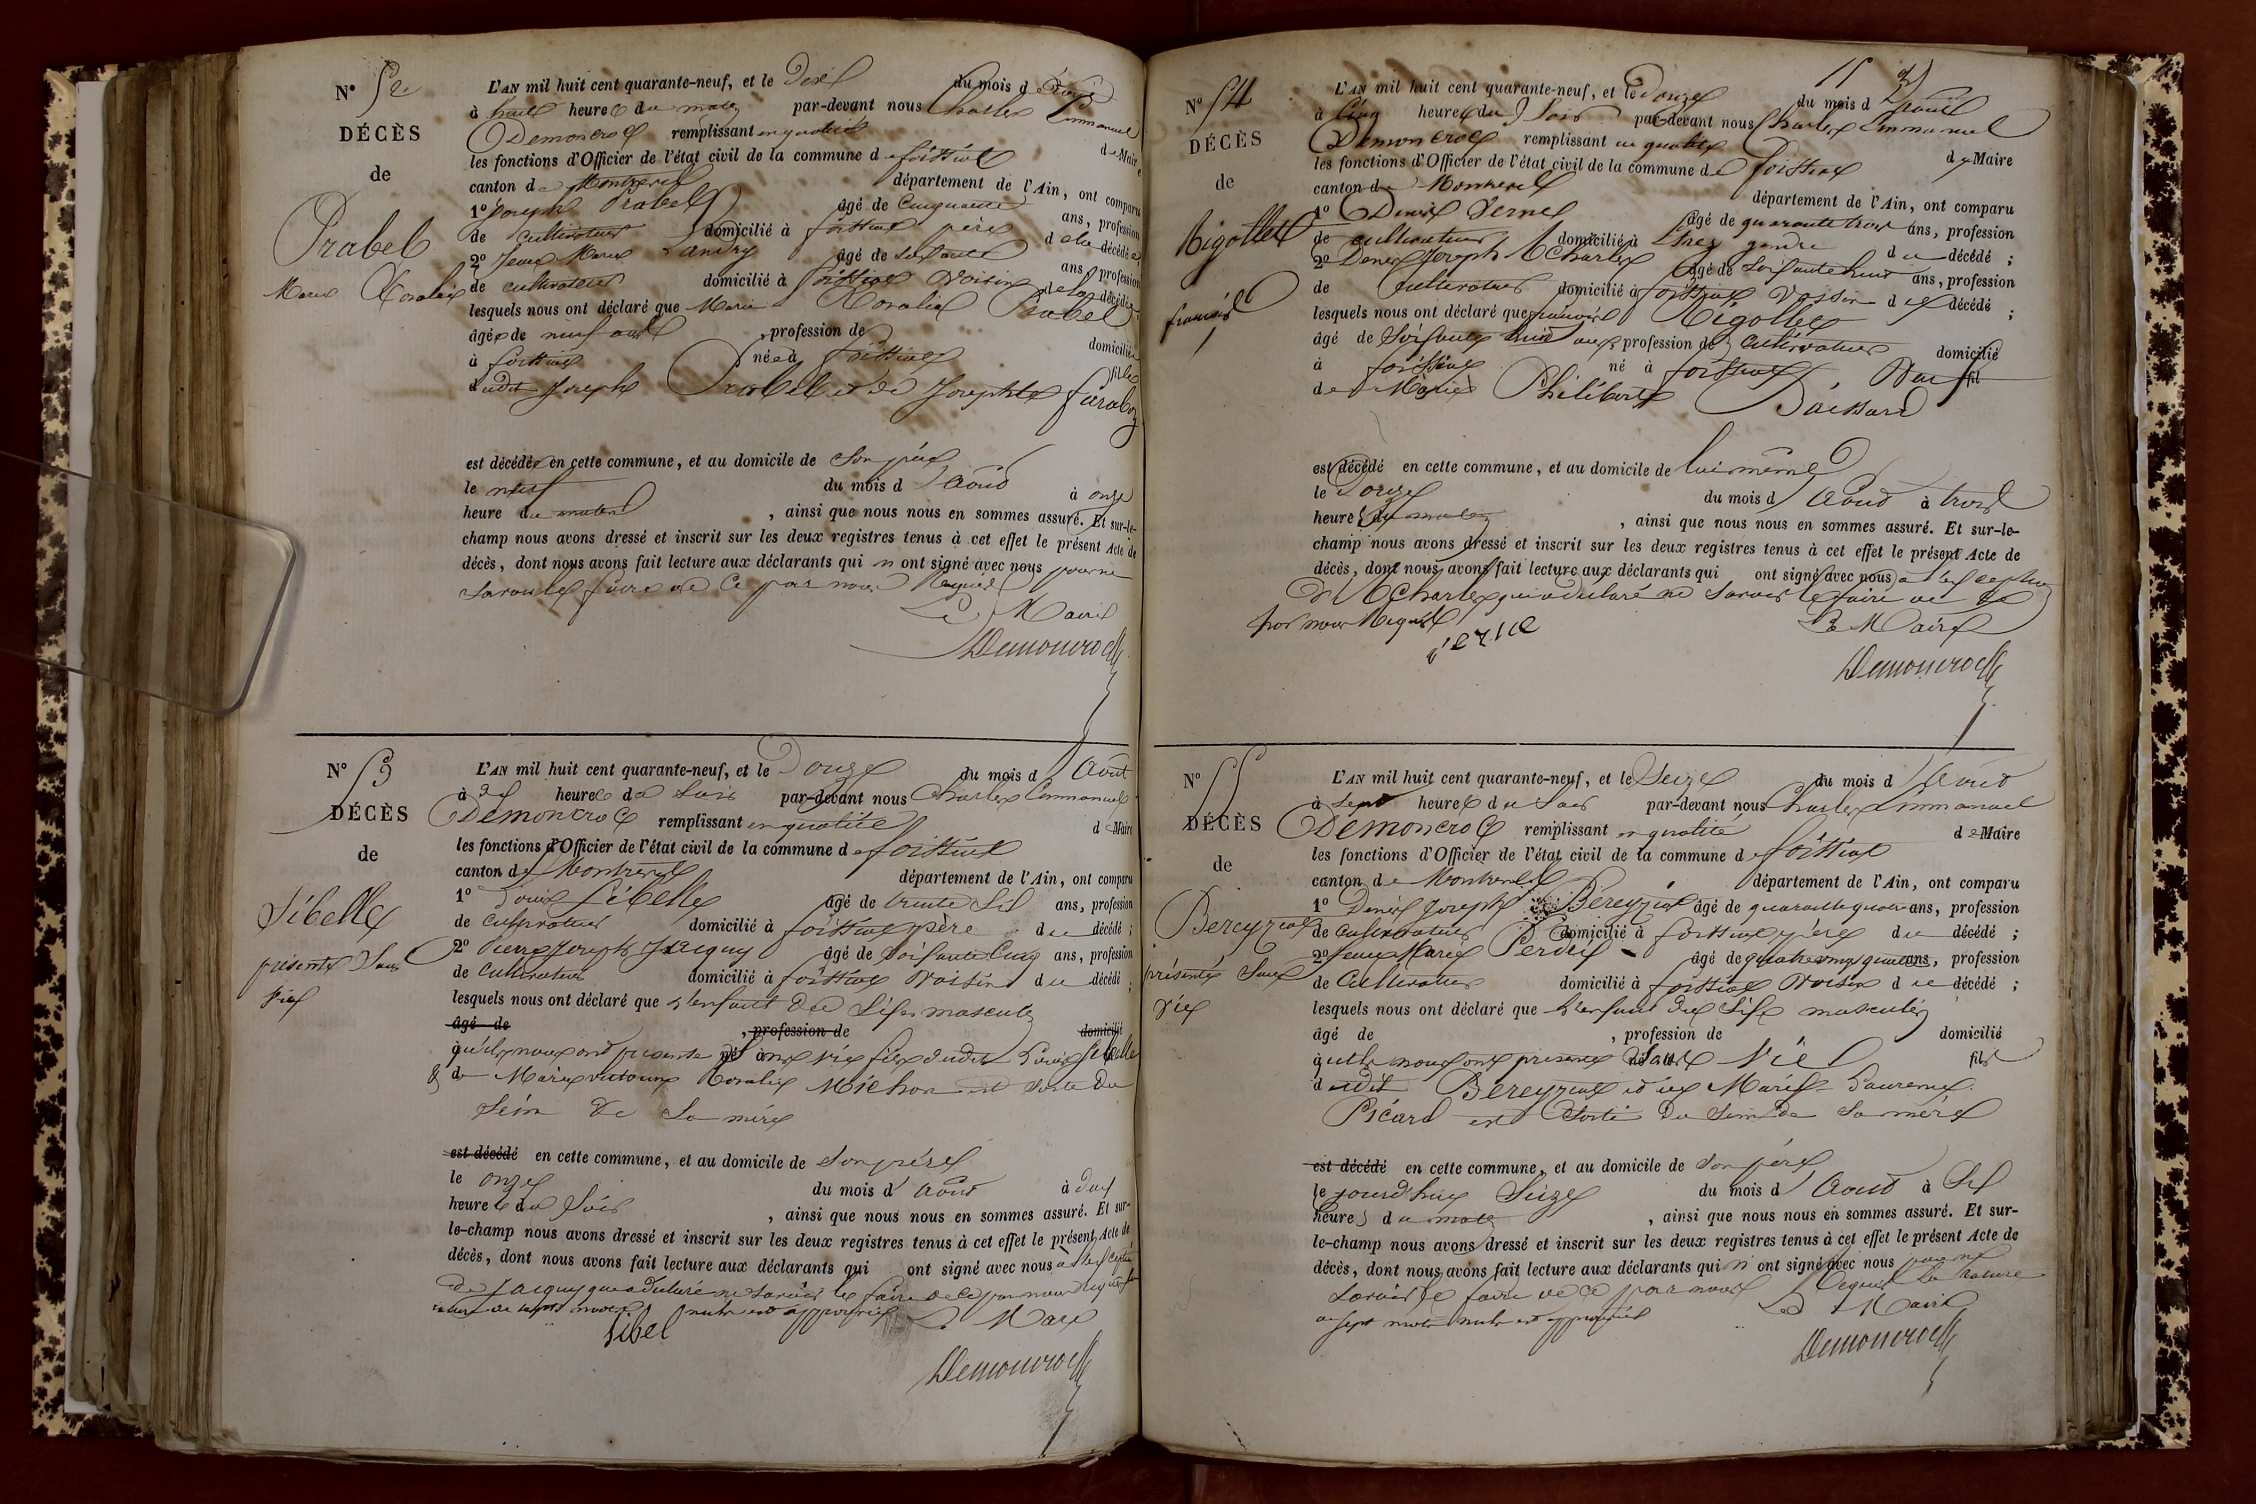 N° 52
DÉCÈS
de
Prabel
Marie Rosalie
L'AN mil huit cent quarante-neuf, et le dix du mois d'Août
à huit heures du matin par-devant nous Charles Emmanuel
Demoncroc remplissant en qualité de Maire
les fonctions d'Officier de l'état civil de la commune de foissiat
canton de Montrevel département de l'Ain, ont comparu
1° Joseph Prabel âgé de Cinquante ans, profession
de cultivateur domicilié à foissiat père de la décédée
2° Jean Marie Landry âgé de soixante ans, profession
de cultivateur domicilié à foissiat Voisin de la décédée
lesquels nous ont déclaré que Marie Rosalie Prabel
âgée de neuf ans, profession de domiciliée
à foissiat née à foissiat fille
dudit Joseph Prabel et de Josephte
est décédée en cette commune, et au domicile de son père
le neuf du mois d'Août à onze
heure du matin, ainsi que nous nous en sommes assuré. Et sur-le-
champ nous avons dressé et inscrit sur les deux registres tenus à cet effet le présent Acte de
décès, dont nous avons fait lecture aux déclarants qui n'ont signé avec nous pour ne
savoir le faire de ce par nous Requis
Le Maire
Demoncroc
N° 53
DÉCÈS
de
Sibelle
présenté Sans
Vie
L'AN mil huit cent quarante-neuf, et le Douze du mois d'Août
à heures du soir par-devant nous Charles Emmanuel
Demoncroc remplissant en qualité de Maire
les fonctions d'Officier de l'état civil de la commune de foissiat
canton de Montrevel département de l'Ain, ont comparu
1° Louis Sibelle âgé de trente six ans, profession
de cultivateur domicilié à foissiat père du décédé;
2° Pierre Joseph Jacquy âgé de soixante Cinq ans, profession
de cultivateur domicilié à foissiat Voisin du décédé;
lesquels nous ont déclaré que l'enfant du Sexe masculin
âgé de, profession de domicilié
qu'ils nous ont présenté né sans vie fils dudit Louis Sibelle
& de Marie Rosalie Michon est sorti du
Sein de Sa mère
est décédé en cette commune, et au domicile de son père
le onze du mois d'Août à
heures du Soir, ainsi que nous nous en sommes assuré. Et sur-
le-champ nous avons dressé et inscrit sur les deux registres tenus à cet effet le présent Acte de
décès, dont nous avons fait lecture aux déclarants qui ont signé avec nous
de Jacquy qui a déclaré ne savoir le faire de ce par nous Requis
de sept mots nuls est approuvée Le Maire
Sibel
Demoncroc
N° 54
DÉCÈS
de
Rigollet
françois
L'AN mil huit cent quarante-neuf, et le Douze du mois d'Août
à Cinq heures du Soir par-devant nous Charles Emmanuel
Demoncroc remplissant en qualité de Maire
les fonctions d'Officier de l'état civil de la commune de foissiat
canton de Montrevel département de l'Ain, ont comparu
1° Denis Verne âgé de quarante trois ans, profession
de cultivateur domicilié à gendre du décédé;
2° Denis Joseph Charles âgé de Soixante huit ans, profession
de Cultivateur domicilié à foissiat Voisin du décédé;
lesquels nous ont déclaré que françois Rigollet
âgé de Soixante huit ans, profession de Cultivateur domicilié
à foissiat né à foissiat fils
de Marie Philiberte
est décédé en cette commune, et au domicile de lui-même
le Douze du mois d'Août à trois
heures du matin, ainsi que nous nous en sommes assuré. Et sur-le-
champ nous avons dressé et inscrit sur les deux registres tenus à cet effet le présent Acte de
décès, dont nous avons fait lecture aux déclarants qui ont signé avec nous
Charles qui a déclaré ne savoir le faire de ce
par nous Requis Le Maire
verne
Demoncroc
N° 55
DÉCÈS
de
Bereyziat
présenté Sans
Vie
L'AN mil huit cent quarante-neuf, et le Seize du mois d'Août
à Sept heures du Soir par-devant nous Charles Emmanuel
Demoncroc remplissant en qualité de Maire
les fonctions d'Officier de l'état civil de la commune de foissiat
canton de Montrevel département de l'Ain, ont comparu
1° Denis Joseph Bereyziat âgé de quarante quatre ans, profession
de cultivateur domicilié à foissiat père du décédé;
2° Jean Marie Perdrix âgé de ans, profession
de Cultivateur domicilié à foissiat Voisin du décédé;
lesquels nous ont déclaré que l'enfant du Sexe masculin
âgé de, profession de domicilié
qu'ils nous ont présenté né sans Vie fils
dudit Bereyziat et de Marie Laurence
Picard est Sorti du Sein de Sa mère
est décédé en cette commune, et au domicile de son père
le jourd'hui Seize du mois d'Août à Six
heures du matin, ainsi que nous nous en sommes assuré. Et sur-
le-champ nous avons dressé et inscrit sur les deux registres tenus à cet effet le présent Acte de
décès, dont nous avons fait lecture aux déclarants qui n'ont signé avec nous pour ne
savoir le faire de ce par nous Requis La Rature
de sept mots nuls est approuvée Le Maire
Demoncroc